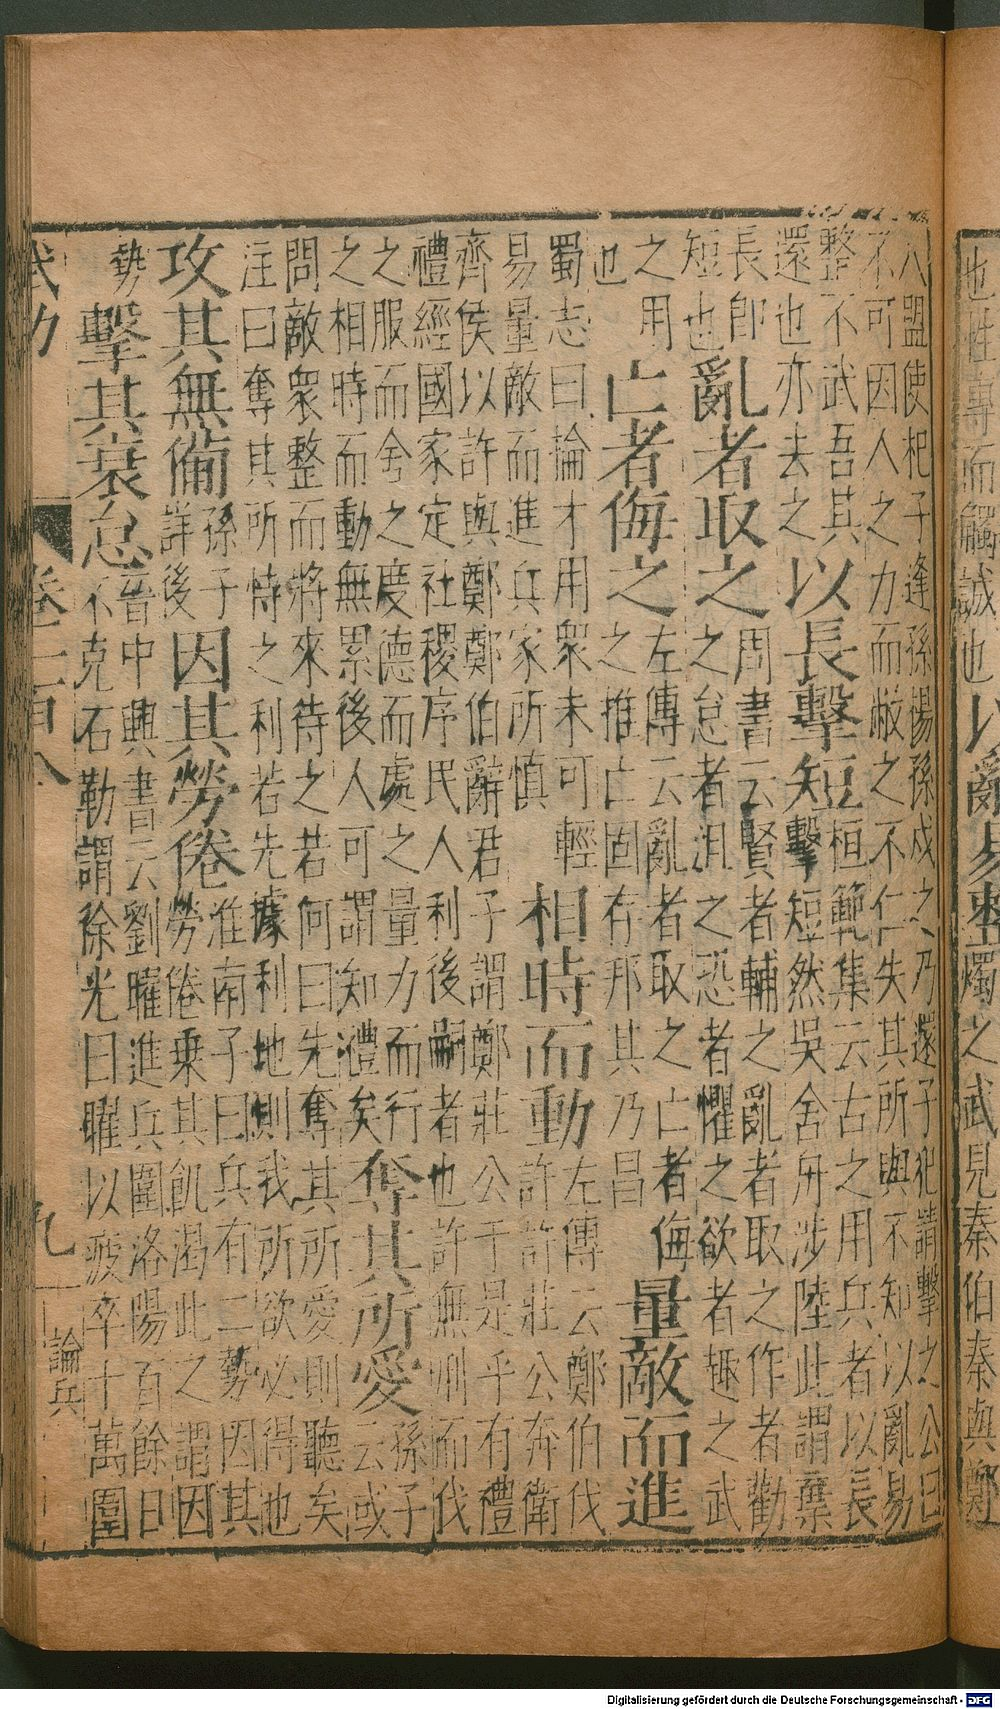 也性專而觸誠也以亂易整燭之武見秦伯秦與鄭
人盟使杞子逢孫揚孫戍之乃還子犯請擊之公曰
不可因人之力而敝之不仁失其所與不知以亂易
整不武吾其
還也亦去之
以長擊短
桓範集云古之用兵者以長
擊短然吳舍舟涉陸此謂棄
長即
短也
亂者取之
周書云賢者輔之亂者取之作者勸
之怠者沮之恐者懼之欲者趣之武
之用
也
亡者侮之
左傳云亂者取之亡者侮
之推亡固存邦其乃昌
量敵而進
蜀志曰掄才用衆未可輕
易量敵而進兵家所慎
相時而動
左傳云鄭伯伐
許許莊公奔衛
齊侯以許與鄭鄭伯辭君子謂鄭莊公于是乎有禮
禮經國家定社稷序民人利後嗣者也許無刑而伐
之服而舍之度德而處之量力而行
之相時而動無累後人可謂知禮矣
奪其所愛
孫子
云或
問敵衆整而將來待之若何曰先奪其所愛則聽矣
注曰奪其所恃之利若先據利地則我所欲必得也
攻其無備
孫子
詳後
因其勞倦
淮南子曰兵有二勢因其
勞倦乗其飢渴此之謂因
勢
擊其衰怠
晉中興書云劉曜進兵圍洛陽百餘日
不克石勒謂徐光曰曜以疲卒十萬圍
武功
卷一百八
九
論兵
Digitalisierung gefördert durch die Deutsche Forschungsgemeinschaft - DFG